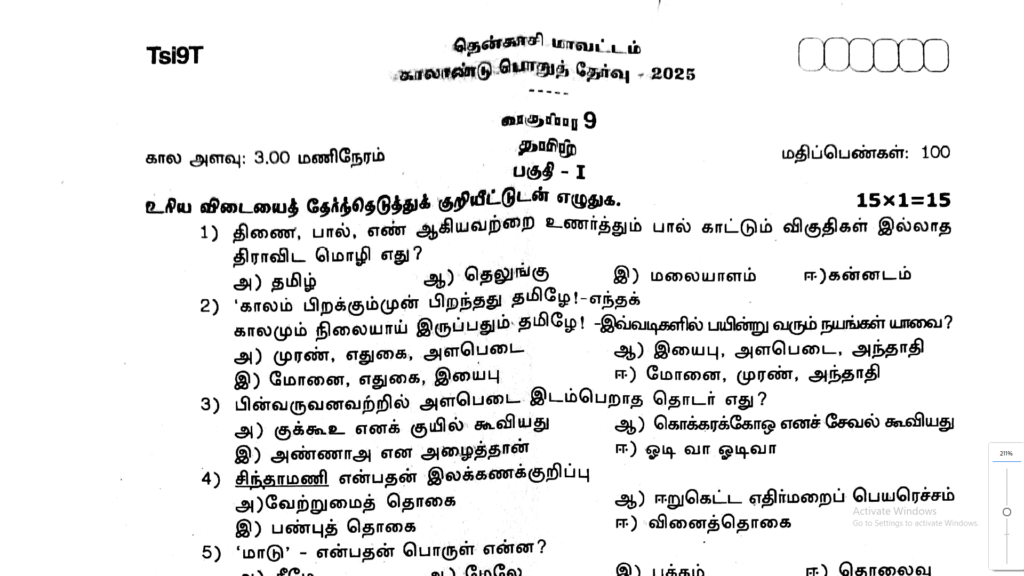 Tsi9T
தென்காசி மாவட்டம்
காலாண்டு பொதுத் தேர்வு - 2025
-----
வகுப்பு 9
தமிழ்
கால அளவு: 3.00 மணிநேரம் மதிப்பெண்கள்: 100
பகுதி - I
உரிய விடையைத் தேர்ந்தெடுத்துக் குறியீட்டுடன் எழுதுக. 15×1=15
1) திணை, பால், எண் ஆகியவற்றை உணர்த்தும் பால் காட்டும் விகுதிகள் இல்லாத
திராவிட மொழி எது?
அ) தமிழ் ஆ) தெலுங்கு இ) மலையாளம் ஈ)கன்னடம்
2) 'காலம் பிறக்கும்முன் பிறந்தது தமிழே!-எந்தக்
காலமும் நிலையாய் இருப்பதும் தமிழே! -இவ்வடிகளில் பயின்று வரும் நயங்கள் யாவை?
அ) முரண், எதுகை, அளபெடை ஆ) இயைபு, அளபெடை, அந்தாதி
இ) மோனை, எதுகை, இயைபு ஈ) மோனை, முரண், அந்தாதி
3) பின்வருவனவற்றில் அளபெடை இடம்பெறாத தொடர் எது?
அ) குக்கூஉ எனக் குயில் கூவியது ஆ) கொக்கரக்கோஒ எனச் சேவல் கூவியது
இ) அண்ணாஅ என அழைத்தான் ஈ) ஓடி வா ஓடிவா
4) சிந்தாமணி என்பதன் இலக்கணக்குறிப்பு
அ)வேற்றுமைத் தொகை ஆ) ஈறுகெட்ட எதிர்மறைப் பெயரெச்சம்
இ) பண்புத் தொகை ஈ) வினைத்தொகை
5) 'மாடு' - என்பதன் பொருள் என்ன?
அ) கீழே ஆ) மேலே இ) பக்கம் ஈ) தொலைவு
211%
Activate Windows
Go to Settings to activate Windows.